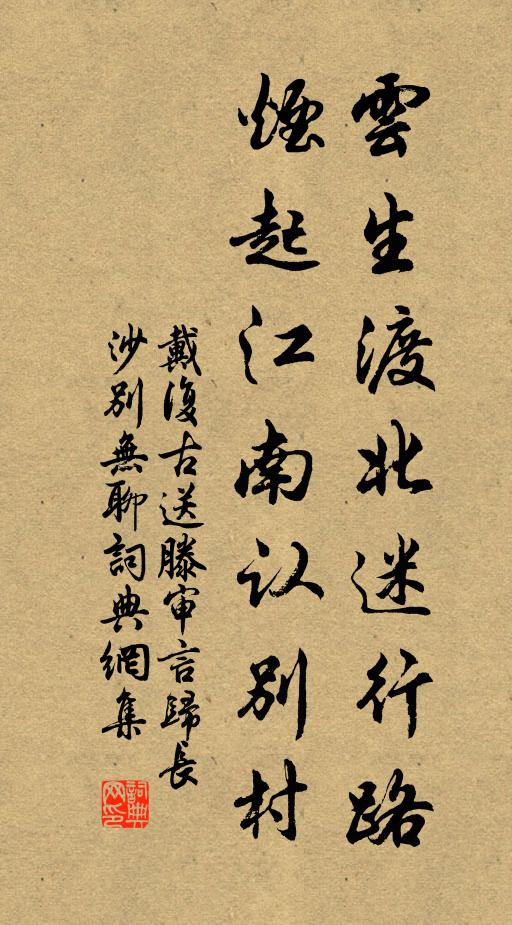 雲生渡北迷行路
煙起江南认別村
戴復古送滕审言歸長
沙別無聊詞典網集
詞典
网印